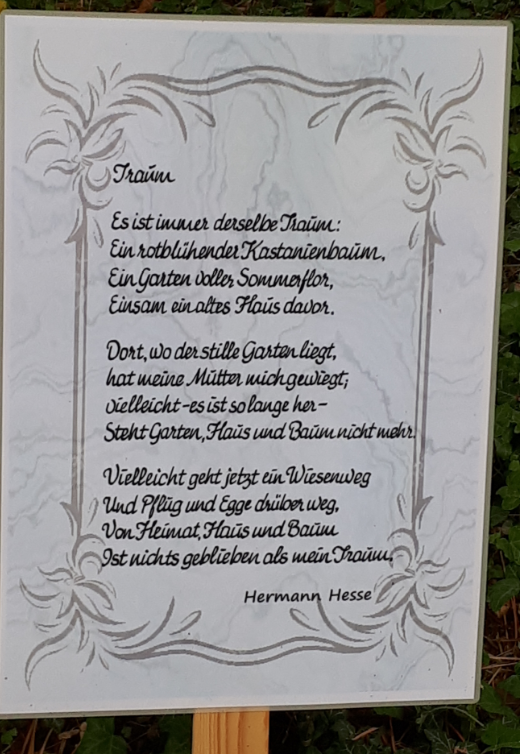 Traum
Es ist immer derselbe Traum:
Ein rotblühender Kastanienbaum,
Ein Garten voller Sommerflor,
Einsam ein altes Haus davor.
Dort, wo der stille Garten liegt,
hat meine Mutter mich gewiegt;
vielleicht - es ist so lange her -
Steht Garten, Haus und Baum nicht mehr.
Vielleicht geht jetzt ein Wiesenweg
Und Pflug und Egge drüber weg,
Von Heimat, Haus und Baum
Ist nichts geblieben als mein Traum.
Hermann Hesse